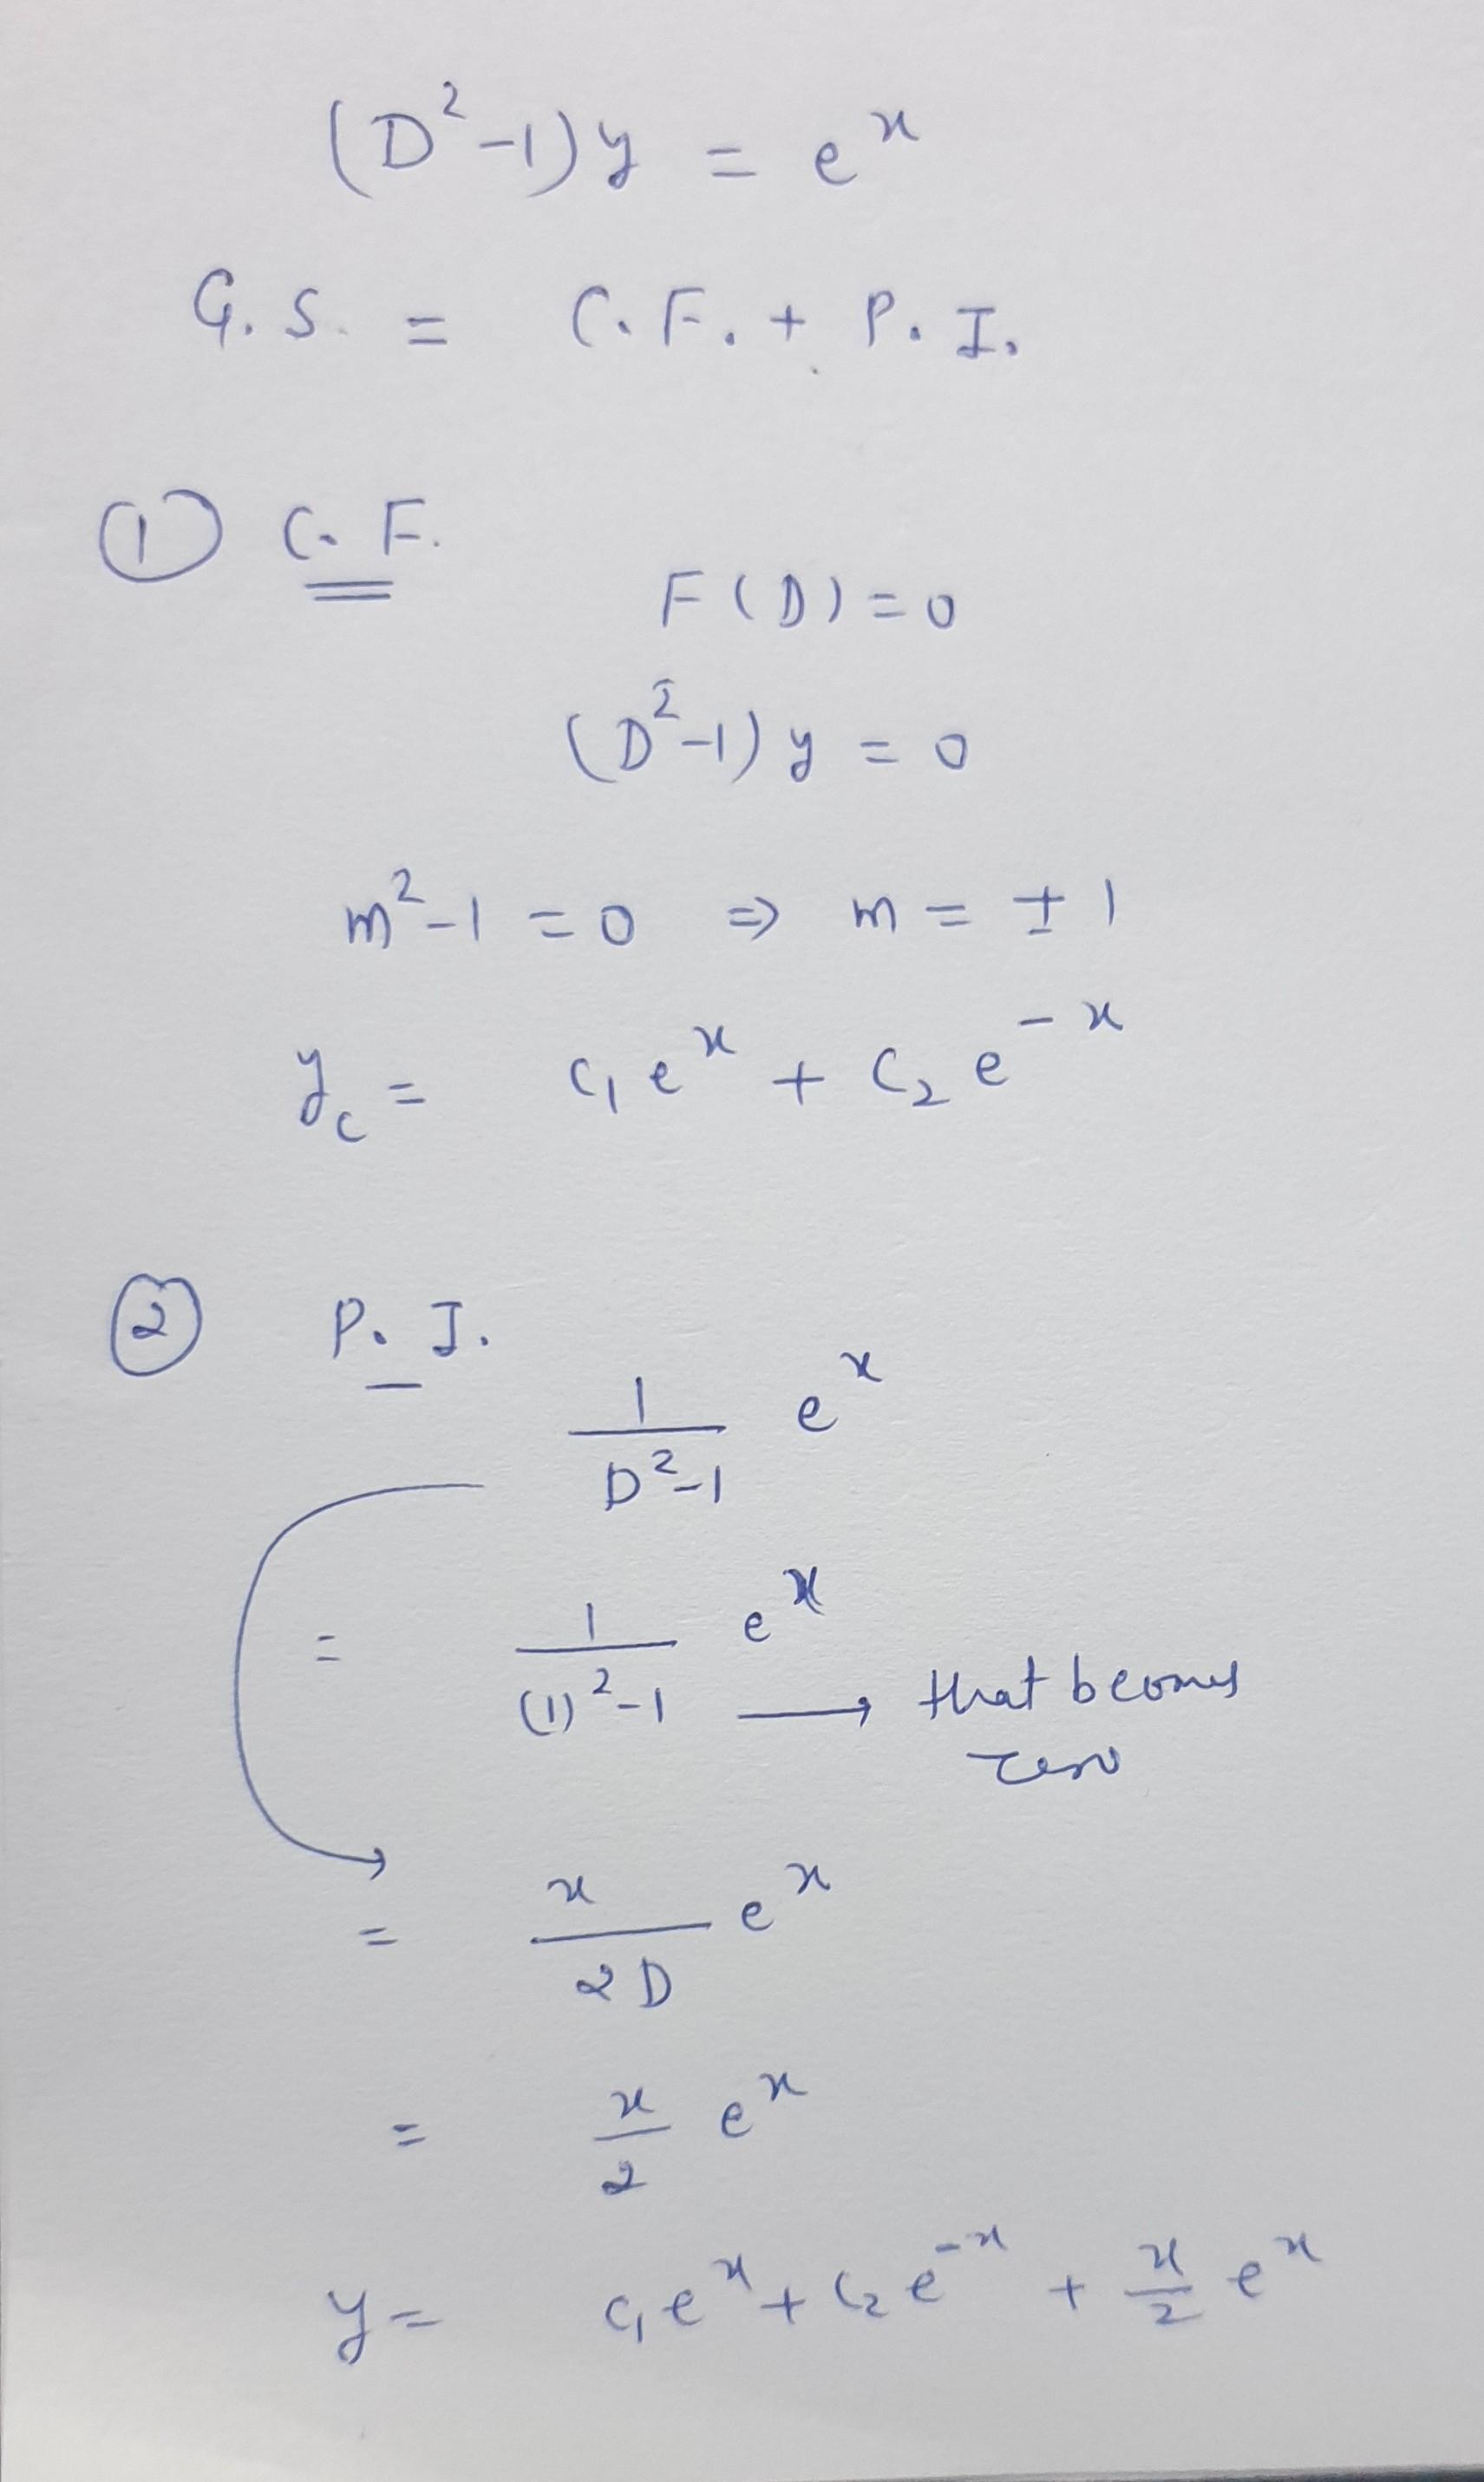 (D²-1)y = eˣ
G.S. = C.F. + P.I.
① C.F.
F(D)=0
(D²-1)y = 0
m²-1 = 0 ⇒ m = ±1
y_c = c₁eˣ + c₂e⁻ˣ
② P.I.
1/(D²-1) eˣ
= 1/((1)²-1) eˣ → that becomes
zero
= x/(2D) eˣ
= x/2 eˣ
y = c₁eˣ + c₂e⁻ˣ + x/2 eˣ